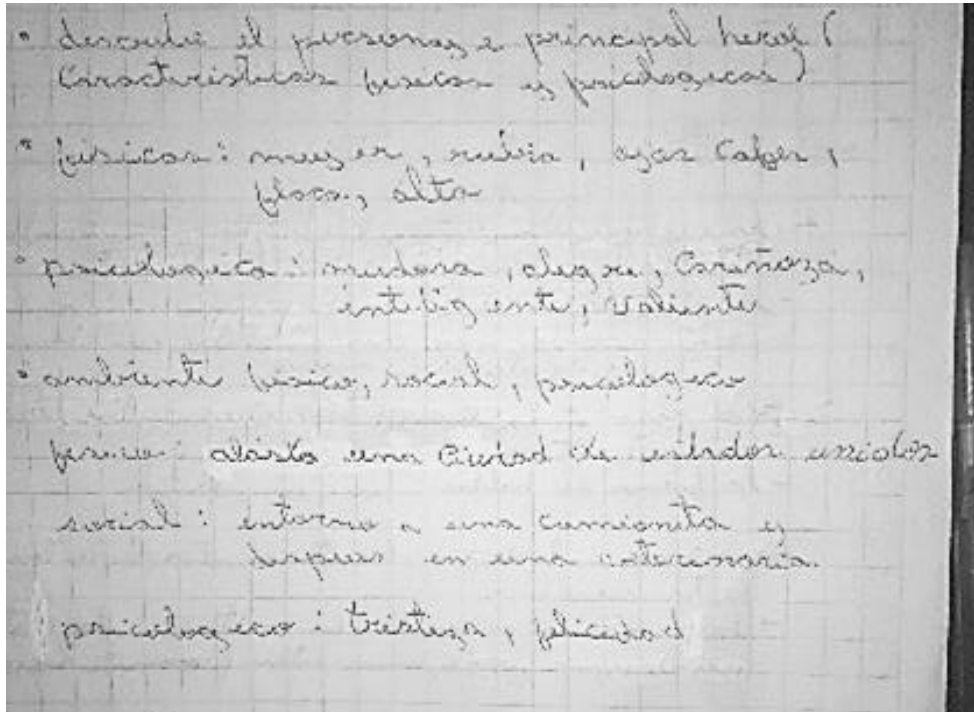 • describe el personaje principal heroj (
Caracteristicas fisicas y psicologicas)
• fisicas: mujer, rubia, ojos Cafes,
flaca, alta
• psicologica: , alegre, Cariñoza,
inteligente, valiente
• ambiente fisico, social, psicologico
fisico: alasta una Ciudad de estados unidos
social: entorno a una camioneta y
despues en una veterinaria.
psicologico: tristeza, felicidad